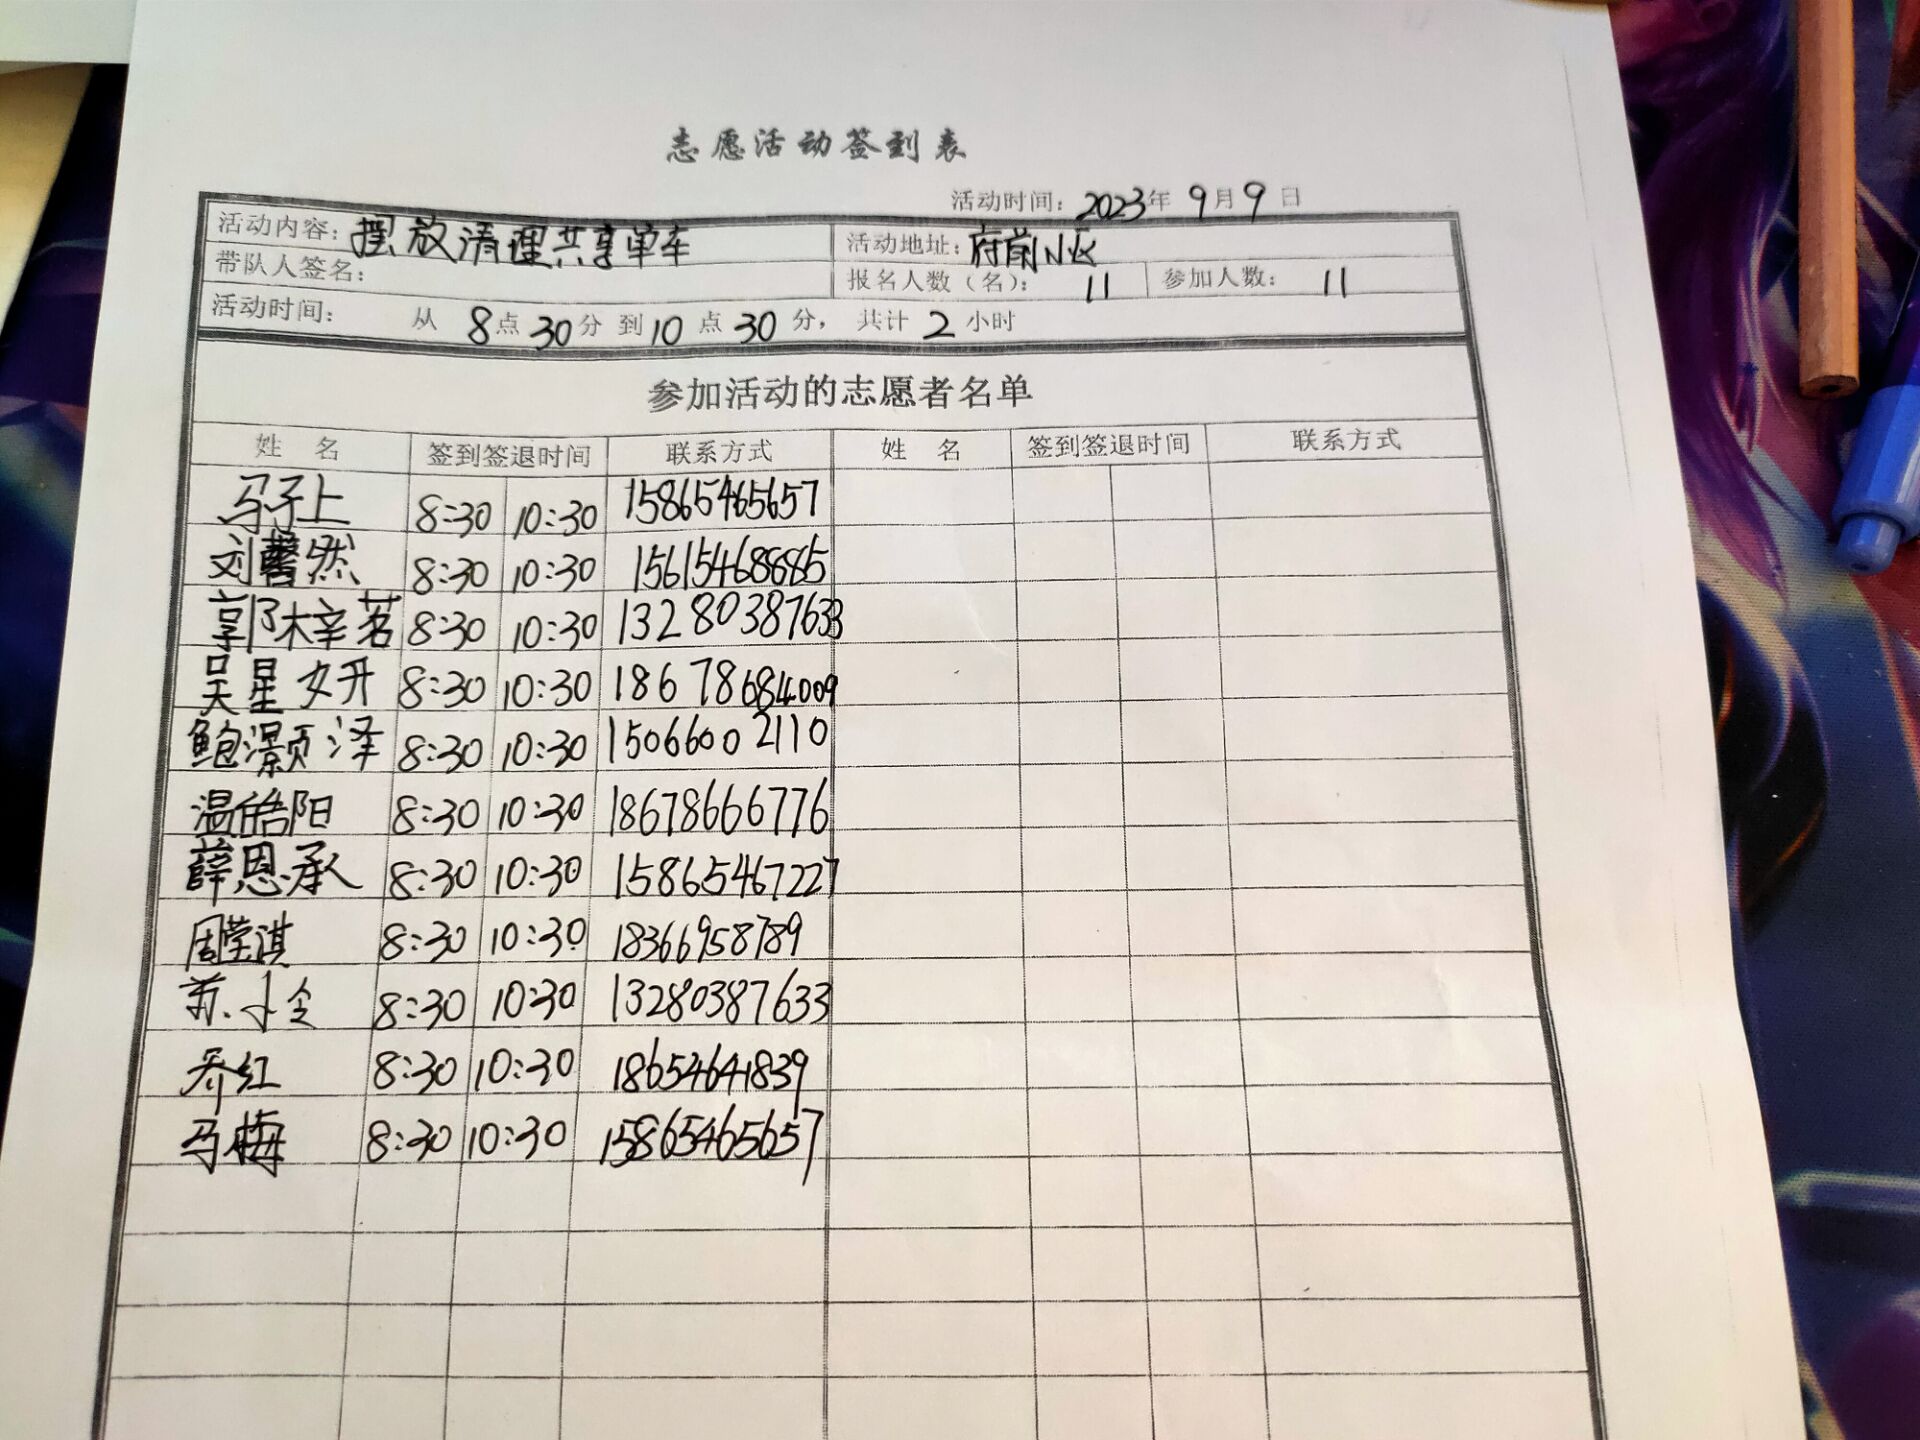 志愿活动签到表
活动时间：2023年9月9日
活动内容：摆放清理共享单车 活动地址：府前小区
带队人签名： 报名人数（名）：11 参加人数：11
活动时间： 从8点30分到10点30分，共计2小时
参加活动的志愿者名单
姓 名 签到签退时间 联系方式 姓 名 签到签退时间 联系方式
马子上 8:30 10:30 15865465657
刘馨然 8:30 10:30
郭梓茗 8:30 10:30 13280387633
吴星妍 8:30 10:30 18678684009
鲍灏泽 8:30 10:30 15066002110
温皓阳 8:30 10:30 18678666776
薛恩承 8:30 10:30 15865467227
周莹淇 8:30 10:30 18366958789
8:30 10:30 13280387633
乔红 8:30 10:30 18654641839
马梅 8:30 10:30 15865465657